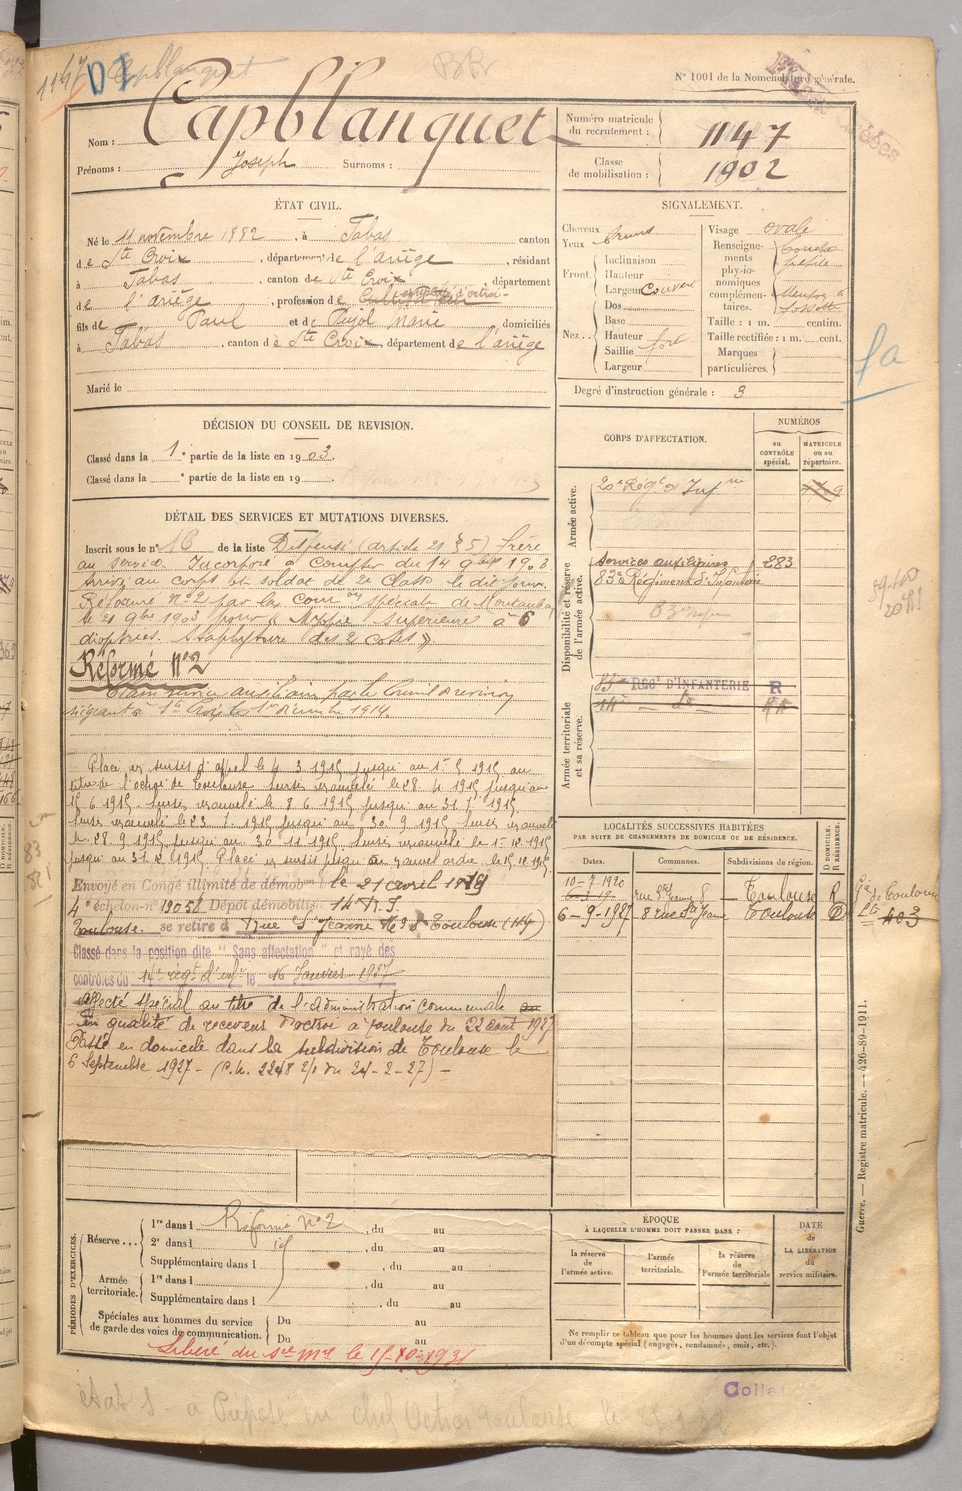 1147 D1 Capblanquet BR
N° 1001 de la Nomenclature générale.
Nom : Capblanquet
Prénoms : Joseph Surnoms :
Numéro matricule du recrutement : 1147
Classe de mobilisation : 1902
ÉTAT CIVIL.
Né le 11 novembre 1882, à Fabas canton
de Ste Croix, département de l'ariège, résidant
à Fabas, canton de Ste Croix, département
de l'ariège, profession de Cultivateur employé d'octroi
fils de Paul et de Pujol Marie domiciliés
à Fabas, canton de Ste Croix, département de l'ariège
Marié le
SIGNALEMENT.
Cheveux
Yeux bruns
Front. Inclinaison
Hauteur
Largeur Couvert
Nez... Dos
Base
Hauteur
Saillie fort
Largeur
Visage ovale
Renseignements physionomiques complémentaires.
Menton à fossette
Taille : 1 m. centim.
Taille rectifiée : 1 m. cent.
Marques particulières.
Degré d'instruction générale : 3
DÉCISION DU CONSEIL DE REVISION.
Classé dans la 1e partie de la liste en 1903.
Classé dans la e partie de la liste en 19
CORPS D'AFFECTATION.
NUMÉROS
au CONTRÔLE spécial.
MATRICULE ou au répertoire.
Armée active.
20e Régt d'Infrie
Disponibilité et réserve de l'armée active.
Services auxiliaires 283
83e Régiment d'Infanterie
Armée territoriale et sa réserve.
83e RÉGt D'INFANTERIE R
14e
DÉTAIL DES SERVICES ET MUTATIONS DIVERSES.
Inscrit sous le n° 16 de la liste Dispensé (article 21 § 5) frère
au service. Incorporé à compter du 14 9bre 1903
Arrivé au corps et soldat de 2e classe le dit jour.
Réformé n° 2 par la Comon spéciale de Montauban
le 21 9bre 1903 pour « Myopie supérieure à 6
dioptries. Staphylome des 2 côtés ».
Réformé N°2
Classé service auxiliaire par le Conseil de revision
siégeant à Ste Croix le 1er décembre 1914.
Placé en sursis d'appel le 4 3 1915 jusqu'au 1er 5 1915 au
titre de l'octroi de Toulouse sursis renouvelé le 28 4 1915 jusqu'au
15 6 1915. Sursis renouvelé le 8 6 1915 jusqu'au 31 7 1915
Sursis renouvelé le 23. 7. 1915 jusqu'au 30. 9 1915. Sursis renouvelé
le 28. 9 1915 jusqu'au 30 11 1915. Sursis renouvelé le 1er 12 1915
jusqu'au 31. 2 1915. Placé en sursis jusqu'à nouvel ordre le 15 12 1915
Envoyé en Congé illimité de démobon le 21 avril 1919
4e échelon n° 19052 Dépôt démobilisr 14e R.I.
Toulouse. se retire à Rue Ste Jeanne N° 8 Toulouse
Classé dans la position dite " Sans affectation " et rayé des
contrôles du 14e régt d'infie le 16 Janvier 1927
affecté spécial au titre de l'administration communale
en qualité de receveur d'octroi à Toulouse du 22 août 1927
Passé en domicile dans la subdivision de Toulouse le
6 Septembre 1927 -
LOCALITÉS SUCCESSIVES HABITÉES
PAR SUITE DE CHANGEMENTS DE DOMICILE OU DE RÉSIDENCE.
Dates. Communes. Subdivisions de région. D DOMICILE. R RÉSIDENCE.
10-7-1920 rue Ste Jeanne 8 Toulouse R
6-9-1927 8 rue Ste Jeanne Toulouse D
403
PÉRIODES D'EXERCICES.
Réserve... 1re dans l Réformé n° 2, du au
2e dans l, du au
Supplémentaire dans l, du au
Armée territoriale. 1re dans l, du au
Supplémentaire dans l, du au
Spéciales aux hommes du service de garde des voies de communication. Du au
Du au
Libéré du sce mre le 15-10-1931
ÉPOQUE
À LAQUELLE L'HOMME DOIT PASSER DANS :
la réserve de l'armée active.
l'armée territoriale.
la réserve de l'armée territoriale
DATE de LA LIBÉRATION du service militaire.
Ne remplir ce tableau que pour les hommes dont les services font l'objet
d'un décompte spécial (engagés, condamnés, omis, etc.).
Guerre. — Registre matricule. — 426-89-1911.